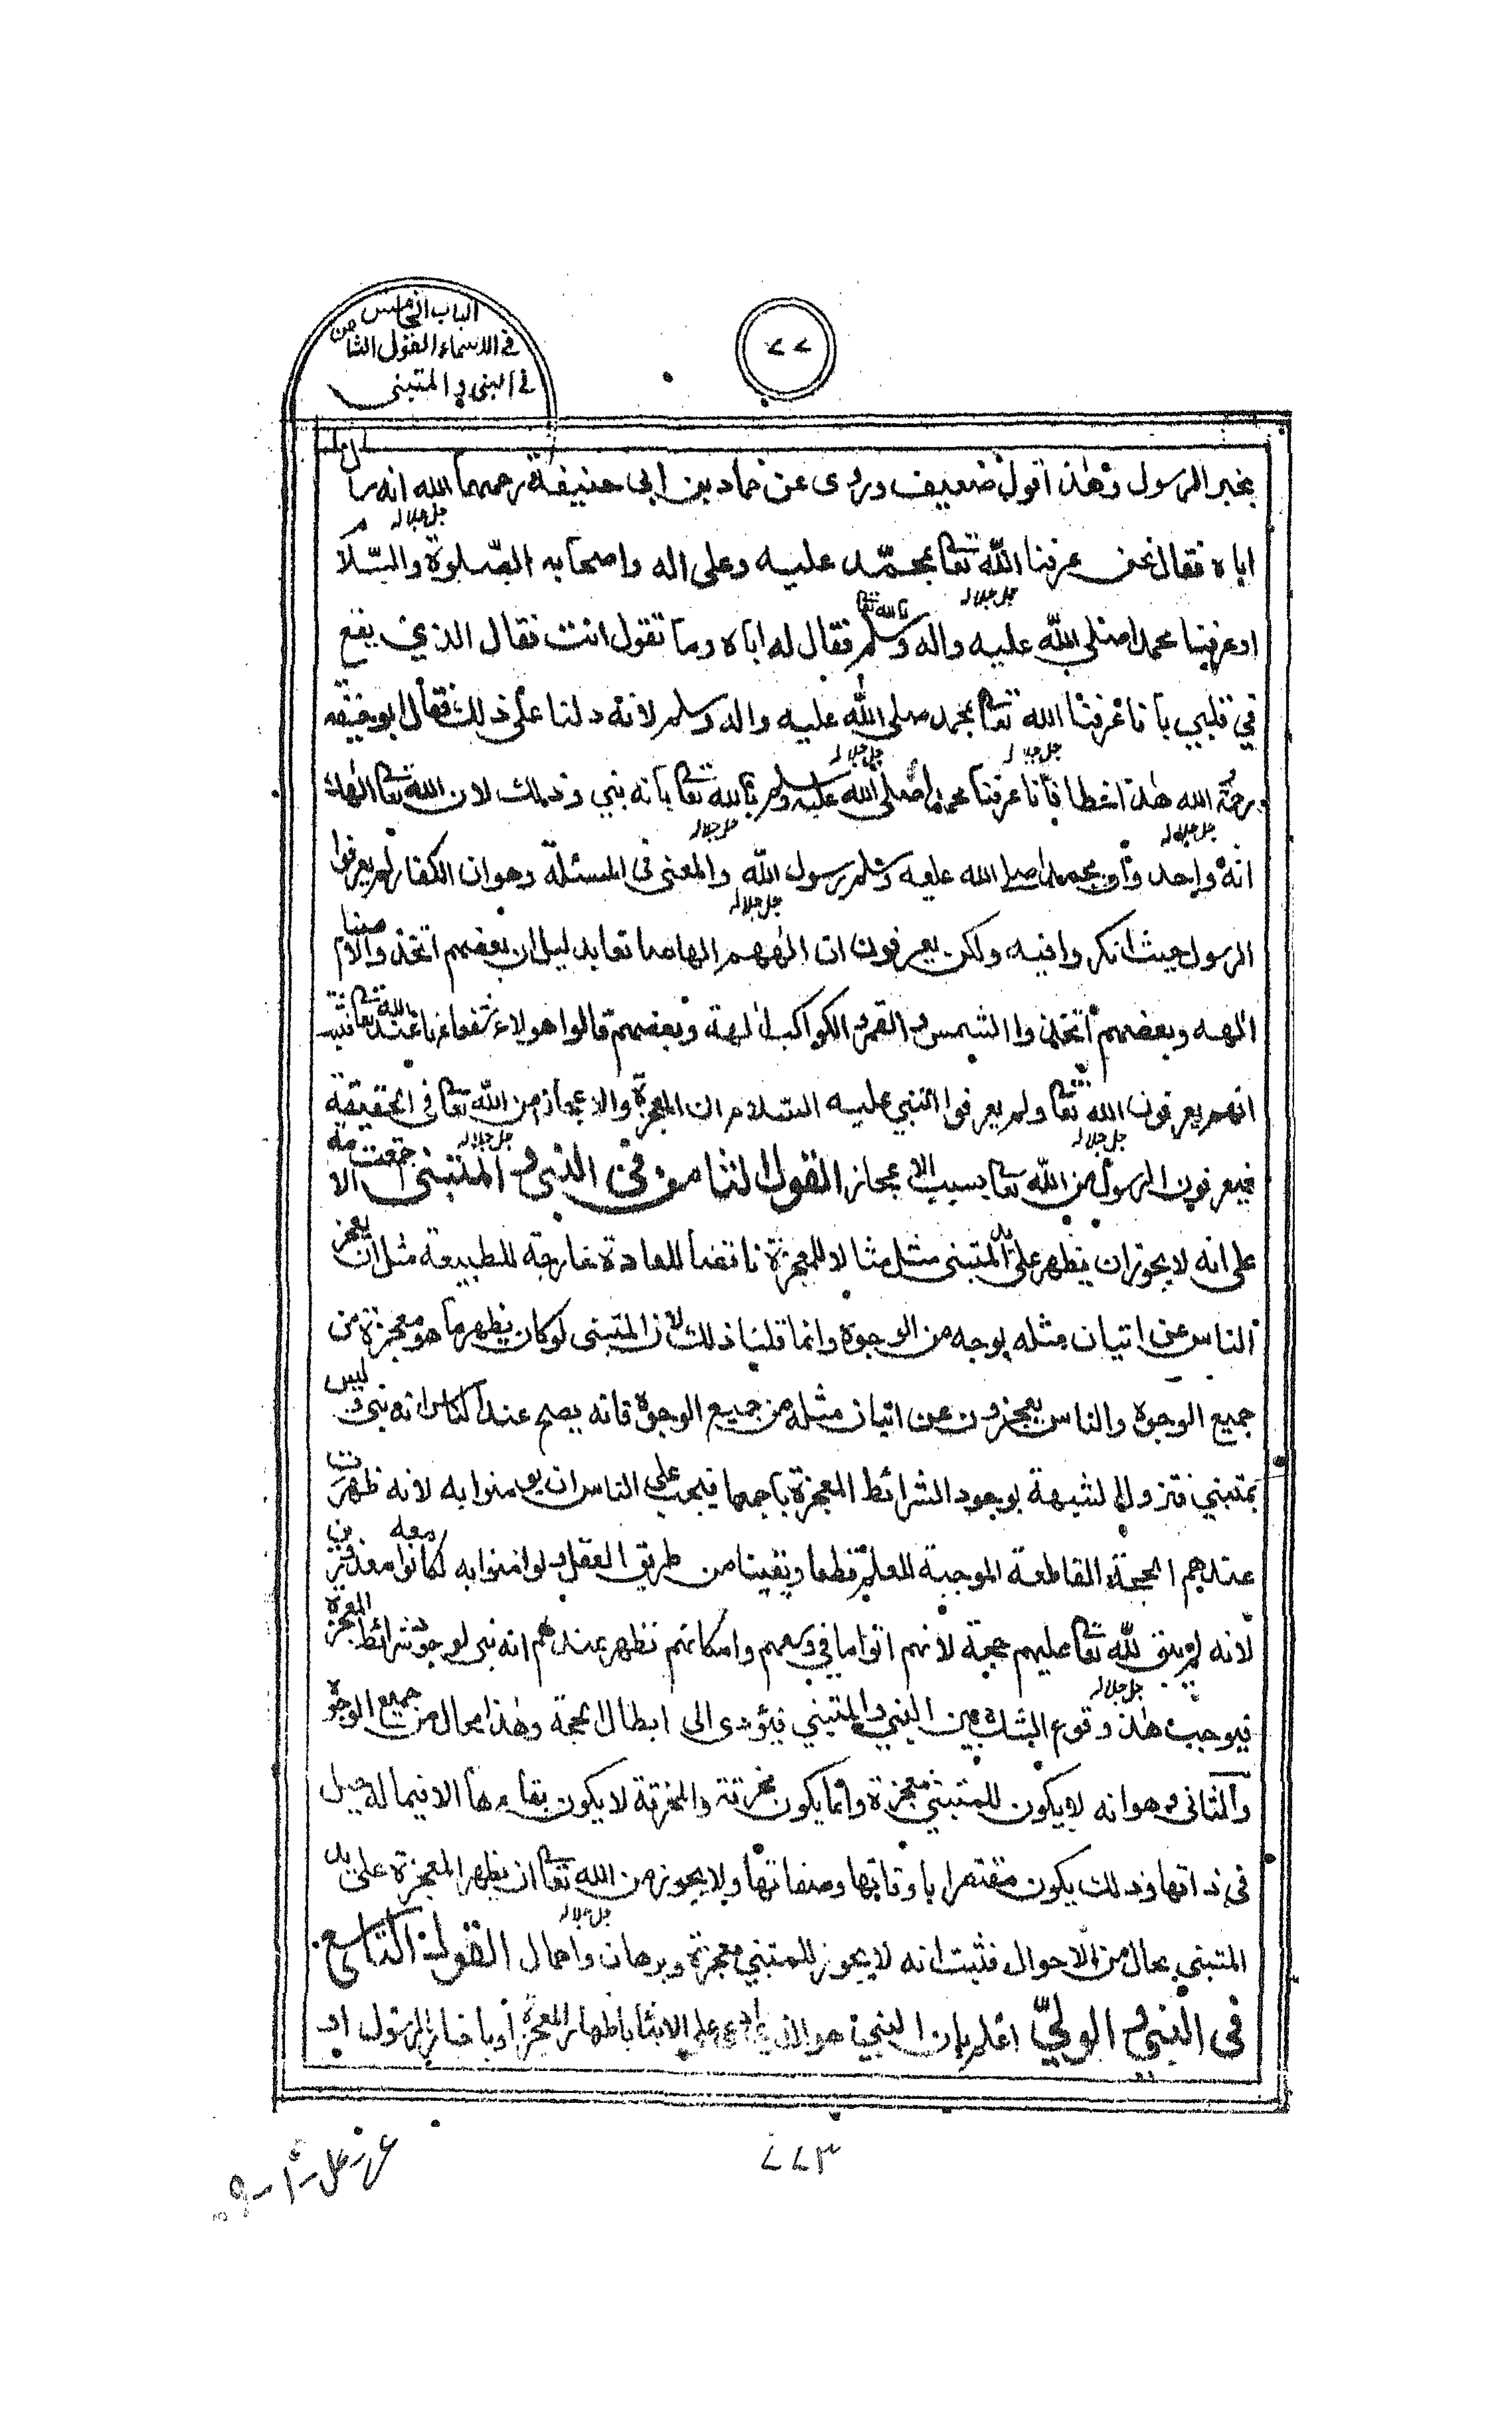 الباب الخامس
في الاسماء القول الثامن
في النبي والمتنبي
٧٧
بخبر الرسول وهذا قول ضعيف وروى عن حماد بن ابى حنيفة رحمهما الله انه سأل
اباه فقال نحن عرفنا الله تعالى جل جلاله بمحمد عليه وعلى اله واصحابه الصلوة والسلام
او عرفنا محمدا صلى الله عليه واله وسلم بالله تعالى جل جلاله فقال له اباه وما تقول انت فقال الذي يقع
في قلبي بانا عرفنا الله تعالى بمحمد صلى الله عليه واله وسلم لانه دلنا على ذلك فقال ابو حنيفة
رحمة الله هذا خطا فانا عرفنا محمدا صلى الله عليه وسلم بالله تعالى جل جلاله بانه نبي وذلك لان الله تعالى
انه واحد وان محمدا صلى الله عليه وسلم رسول الله جل جلاله والمعنى فى المسئلة وهو ان الكفار لم يعرفوا
الرسول حيث انكروا فيه ولكن يعرفون ان الههم بدليل ان بعضهم اتخذوا الاصنام
الهه وبعضهم اتخذوا الشمس والقمر والكواكب الهة وبعضهم قالوا هولاء شفعاءنا عند الله تعالى فثبت
انهم يعرفون الله تعالى ولم يعرفوا النبي عليه السلام ان المعجزة والاعجاز من الله تعالى فى الحقيقة
فيعرفون الرسول من الله تعالى جل جلاله بسبب الاعجاز القول الثامن في النبي والمتنبى اجتمعت الامة
على انه لا يجوز ان يظهر على يد المتنبى مثل مثالا للمعجزة ناقضا للعادة خارجة للطبيعة مثل ان يعجز
الناس عن اتيان مثله بوجه من الوجوه وانما قلنا ذلك لان المتنبى لو كان يظهر ما هو معجزة من
جميع الوجوه والناس يعجزون عن اتيان مثله من جميع الوجوه فانه يصح عند الناس انه نبى وليس
بمتنبي فتزول الشبهة بوجود الشرائط المعجزة باجمها فيجب على الناس ان يومنوا به لانه ظهرت
عندهم الحجة القاطعة الموجبة للعلم قطعا ويقينا من طريق العقل ولو امنوا به لكانوا معذورين
لانه لم يبق لله تعالى عليهم حجة لانهم اتوا ما في وسعهم وامكانهم تظهر عندهم انه نبى لوجود شرائط المعجزة
فيوجب هذا وقوع الشك بين النبي والمتنبي فيؤدى الى ابطال الحجة وهذا محال من جميع الوجوه
والثانى وهو انه لا يكون للمتنبي معجزة وانما يكون مخرقة والمخرقة لا يكون بقاءها الا فيما له حيل
فى ذاتها وذلك يكون باوقاتها وصفاتها ولا يجوز من الله تعالى جل جلاله ان يظهر المعجزة على يد
المتنبي بحال من الاحوال فثبت انه لا يجوز للمتنبي معجزة وبرهان القول التاسع
فى النبي والولي اعلم بان النبي هو الذي ادعى باظهار المعجزة او باخبار الرسول او
٧٧٣